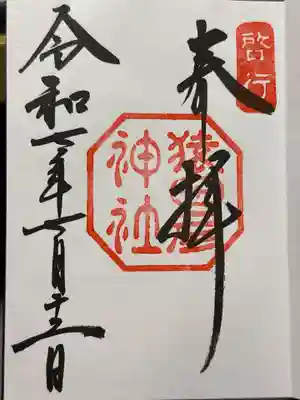 啓行
奉拝
猿田彦
神社
令和 年七月十三日